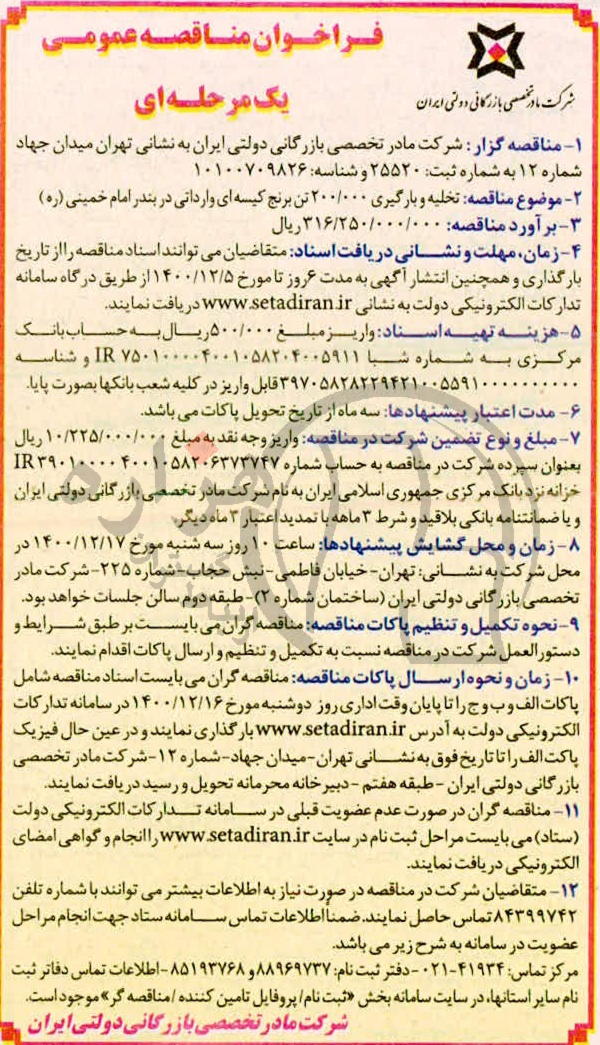 فراخوان مناقصه عمومی
یک مرحله ای
شرکت مادر تخصصی بازرگانی دولتی ایران
۱- مناقصه گزار: شرکت مادر تخصصی بازرگانی دولتی ایران به نشانی تهران میدان جهاد
شماره ۱۲ به شماره ثبت: ۲۵۵۲۰ و شناسه: ۱۰۱۰۰۷۰۹۸۲۶
۲- موضوع مناقصه: تخلیه و بارگیری ۲۰۰/۰۰۰ تن برنج کیسه ای وارداتی در بندر امام خمینی (ره)
۳- برآورد مناقصه: ۳۱۶/۲۵۰/۰۰۰/۰۰۰ ریال
۴- زمان، مهلت و نشانی دریافت اسناد: متقاضیان می توانند اسناد مناقصه را از تاریخ
بارگذاری و همچنین انتشار آگهی به مدت ۶ روز تا مورخ ۱۴۰۰/۱۲/۵ از طریق درگاه سامانه
تدارکات الکترونیکی دولت به نشانی www.setadiran.ir دریافت نمایند.
۵- هزینه تهیه اسناد: واریز مبلغ ۵۰۰/۰۰۰ ریال به حساب بانک
مرکزی به شماره شبا IR ۷۵۰۱۰۰۰۰۴۰۰۱۰۵۸۲۰۴۰۰۵۹۱۱ و شناسه
۳۹۷۰۵۸۲۸۲۲۹۴۲۱۰۰۵۵۹۱۰۰۰۰۰۰۰۰۰۰ قابل واریز در کلیه شعب بانکها بصورت پایا.
۶- مدت اعتبار پیشنهادها: سه ماه از تاریخ تحویل پاکات می باشد.
۷- مبلغ و نوع تضمین شرکت در مناقصه: واریز وجه نقد به مبلغ ۱۰/۲۲۵/۰۰۰/۰۰۰ ریال
بعنوان سپرده شرکت در مناقصه به حساب شماره IR ۳۹۰۱۰۰۰۰ ۴۰۰۱۰۵۸۲۰۶۳۷۳۷۴۷
خزانه نزد بانک مرکزی جمهوری اسلامی ایران به نام شرکت مادر تخصصی بازرگانی دولتی ایران
و یا ضمانتنامه بانکی بلاقید و شرط ۳ ماهه با تمدید اعتبار ۳ ماه دیگر.
۸- زمان و محل گشایش پیشنهادها: ساعت ۱۰ روز سه شنبه مورخ ۱۴۰۰/۱۲/۱۷ در
محل شرکت به نشانی: تهران- خیابان فاطمی- نبش حجاب- شماره ۲۲۵- شرکت مادر
تخصصی بازرگانی دولتی ایران (ساختمان شماره ۲)- طبقه دوم سالن جلسات خواهد بود.
۹- نحوه تکمیل و تنظیم پاکات مناقصه: مناقصه گران می بایست بر طبق شرایط و
دستورالعمل شرکت در مناقصه نسبت به تکمیل و تنظیم و ارسال پاکات اقدام نمایند.
۱۰- زمان و نحوه ارسال پاکات مناقصه: مناقصه گران می بایست اسناد مناقصه شامل
پاکات الف و ب و ج را تا پایان وقت اداری روز دوشنبه مورخ ۱۴۰۰/۱۲/۱۶ در سامانه تدارکات
الکترونیکی دولت به آدرس www.setadiran.ir بارگذاری نمایند و در عین حال فیزیک
پاکت الف را تا تاریخ فوق به نشانی تهران- میدان جهاد- شماره ۱۲- شرکت مادر تخصصی
بازرگانی دولتی ایران - طبقه هفتم - دبیرخانه محرمانه تحویل و رسید دریافت نمایند.
۱۱- مناقصه گران در صورت عدم عضویت قبلی در سامانه تدارکات الکترونیکی دولت
(ستاد) می بایست مراحل ثبت نام در سایت www.setadiran.ir را انجام و گواهی امضای
الکترونیکی دریافت نمایند.
۱۲- متقاضیان شرکت در مناقصه در صورت نیاز به اطلاعات بیشتر می توانند با شماره تلفن
۸۴۳۹۹۷۴۲ تماس حاصل نمایند. ضمناً اطلاعات تماس سامانه ستاد جهت انجام مراحل
عضویت در سامانه به شرح زیر می باشد.
مرکز تماس: ۴۱۹۳۴-۰۲۱- دفتر ثبت نام: ۸۸۹۶۹۷۳۷ و ۸۵۱۹۳۷۶۸- اطلاعات تماس دفاتر ثبت
نام سایر استانها، در سایت سامانه بخش «ثبت نام/ پروفایل تامین کننده / مناقصه گر» موجود است.
شرکت مادر تخصصی بازرگانی دولتی ایران